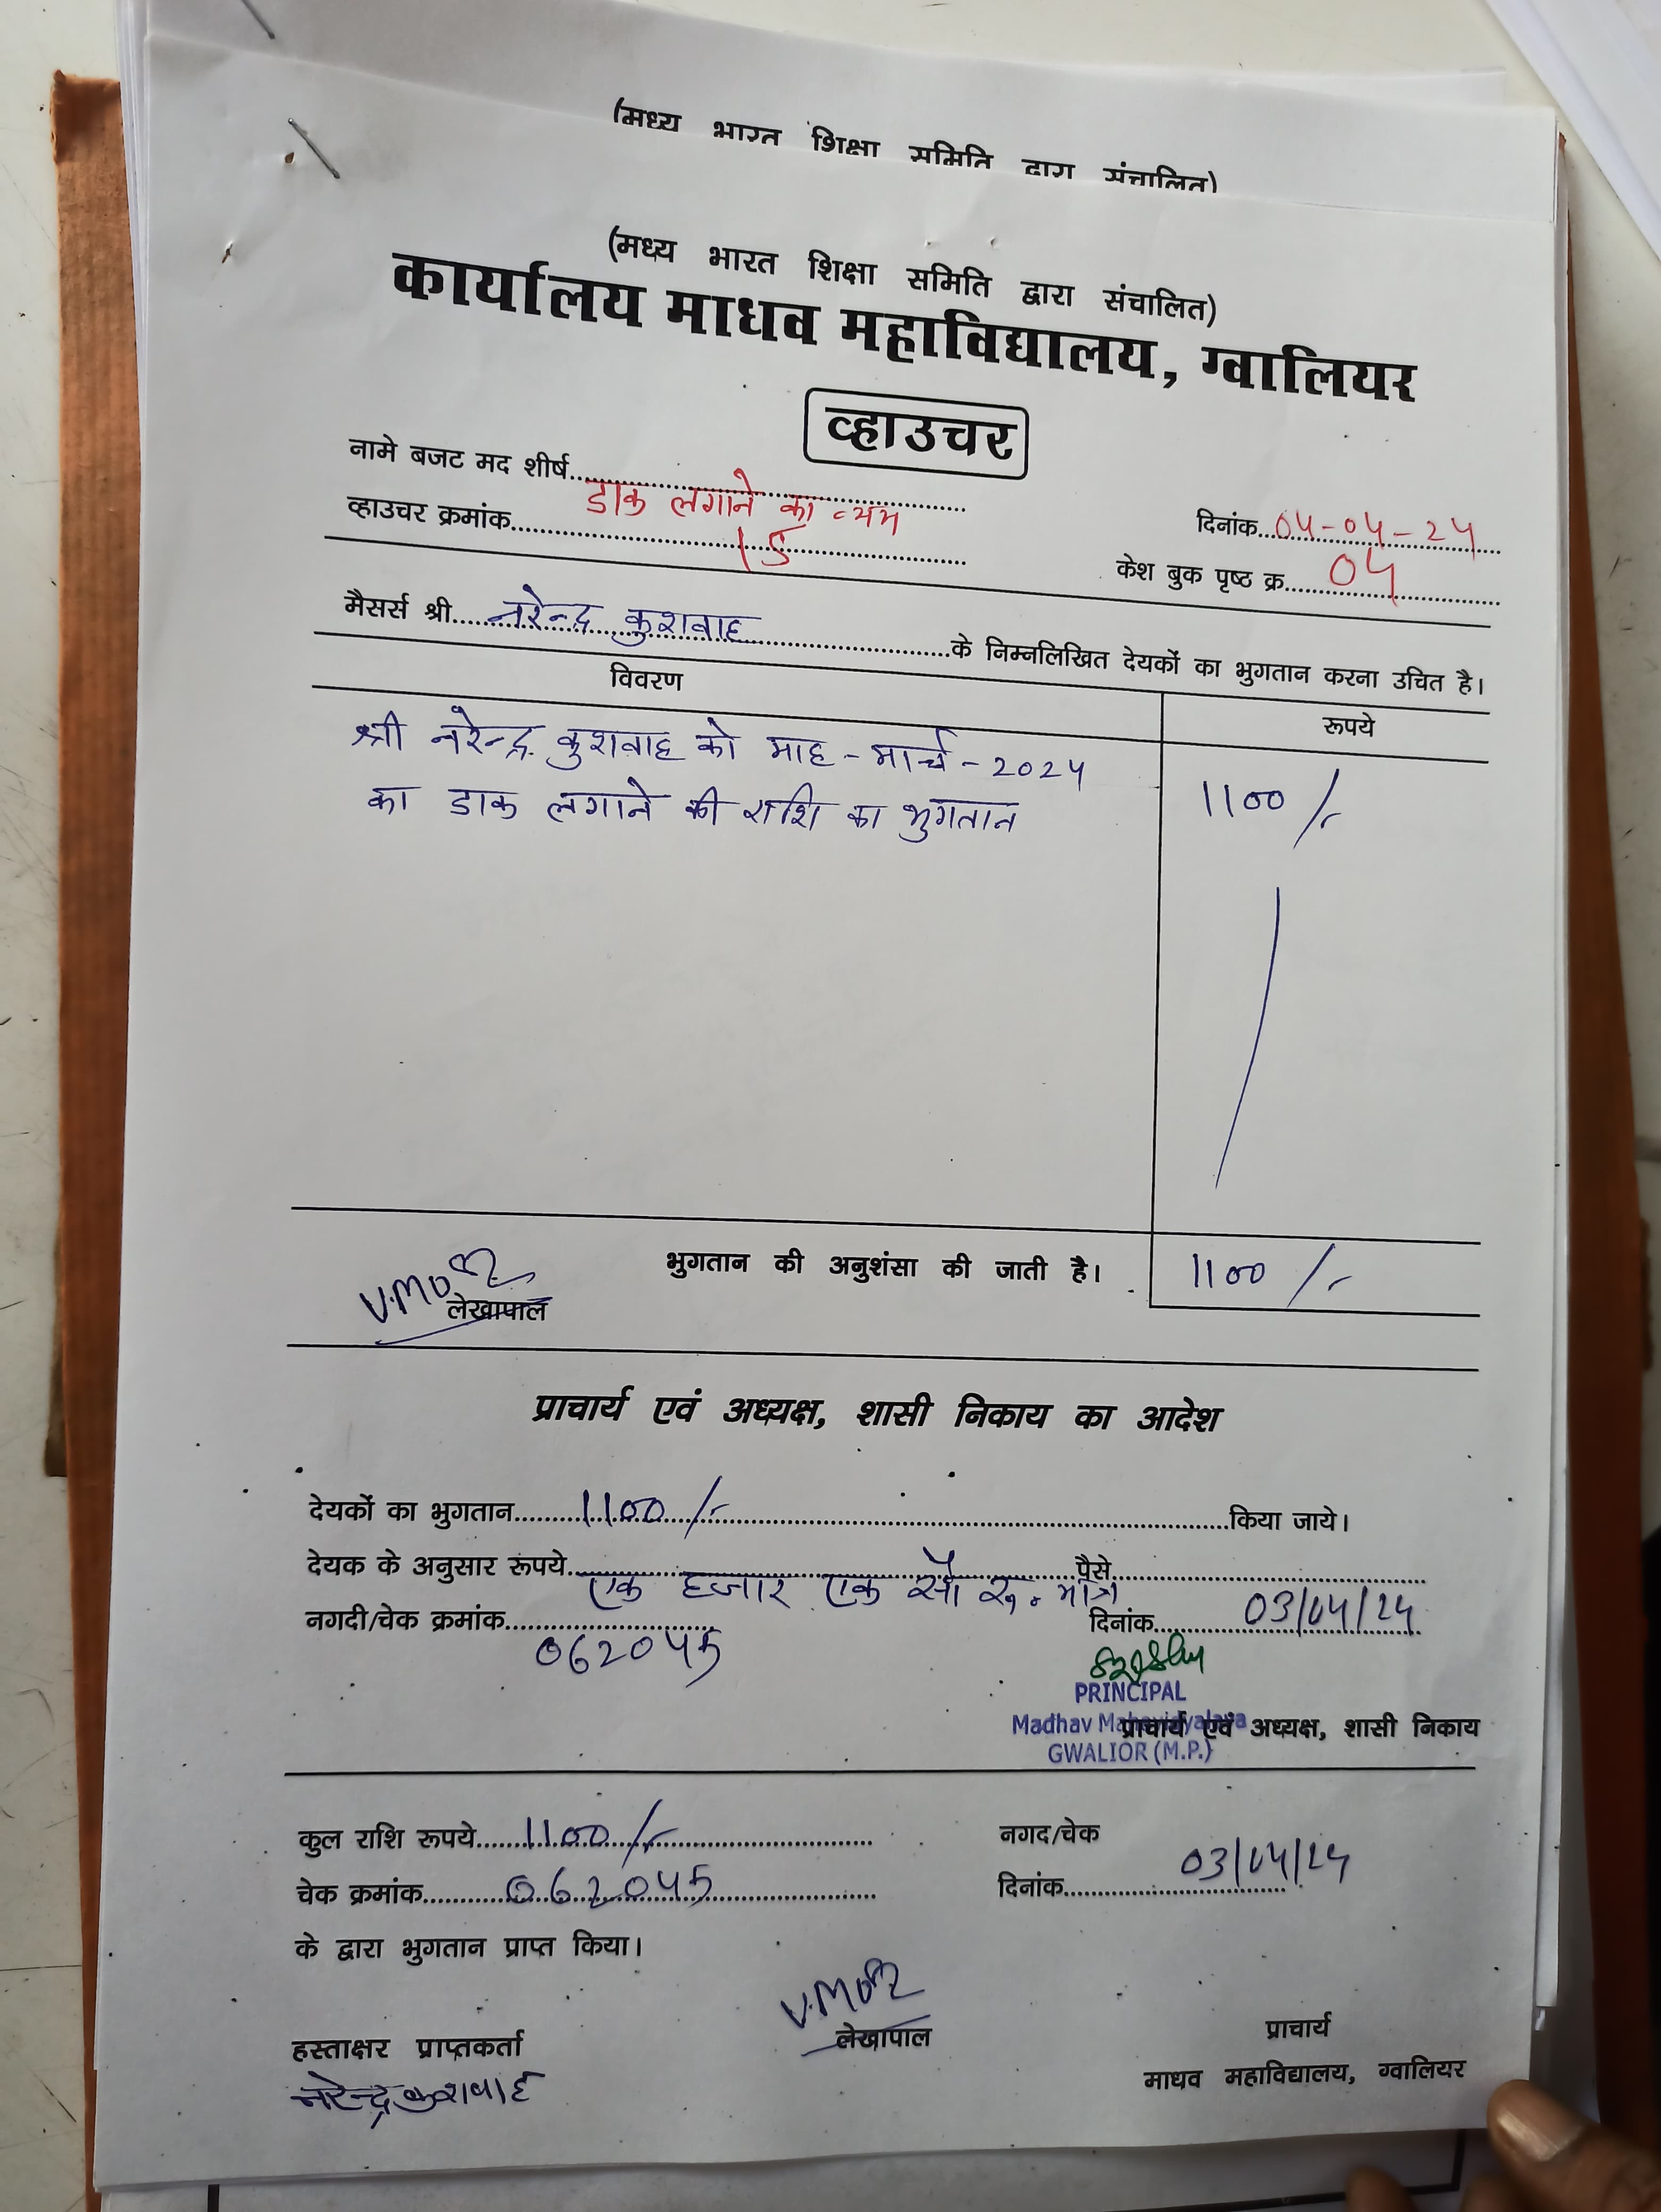 (मध्य भारत शिक्षा समिति द्वारा संचालित)
(मध्य भारत शिक्षा समिति द्वारा संचालित)
कार्यालय माधव महाविद्यालय, ग्वालियर
व्हाउचर
नामे बजट मद शीर्ष डाक लगाने का व्यय
दिनांक 04-04-24
व्हाउचर क्रमांक 15
केश बुक पृष्ठ क्र. 04
मैसर्स श्री नरेन्द्र कुशवाह के निम्नलिखित देयकों का भुगतान करना उचित है।
विवरण रूपये
श्री नरेन्द्र कुशवाह को माह - मार्च - 2024
का डाक लगाने की राशि का भुगतान 1100/-
भुगतान की अनुशंसा की जाती है। 1100/-
लेखापाल
प्राचार्य एवं अध्यक्ष, शासी निकाय का आदेश
देयकों का भुगतान 1100/- किया जाये।
देयक के अनुसार रूपये एक हजार एक सौ रु. मात्र पैसे
नगदी/चेक क्रमांक 062045 दिनांक 03/04/24
PRINCIPAL
Madhav Mahavidyalaya
GWALIOR (M.P.)
प्राचार्य एवं अध्यक्ष, शासी निकाय
कुल राशि रूपये 1100/- नगद/चेक
चेक क्रमांक 062045 दिनांक 03/04/24
के द्वारा भुगतान प्राप्त किया।
लेखापाल
हस्ताक्षर प्राप्तकर्ता प्राचार्य
नरेन्द्र कुशवाह माधव महाविद्यालय, ग्वालियर